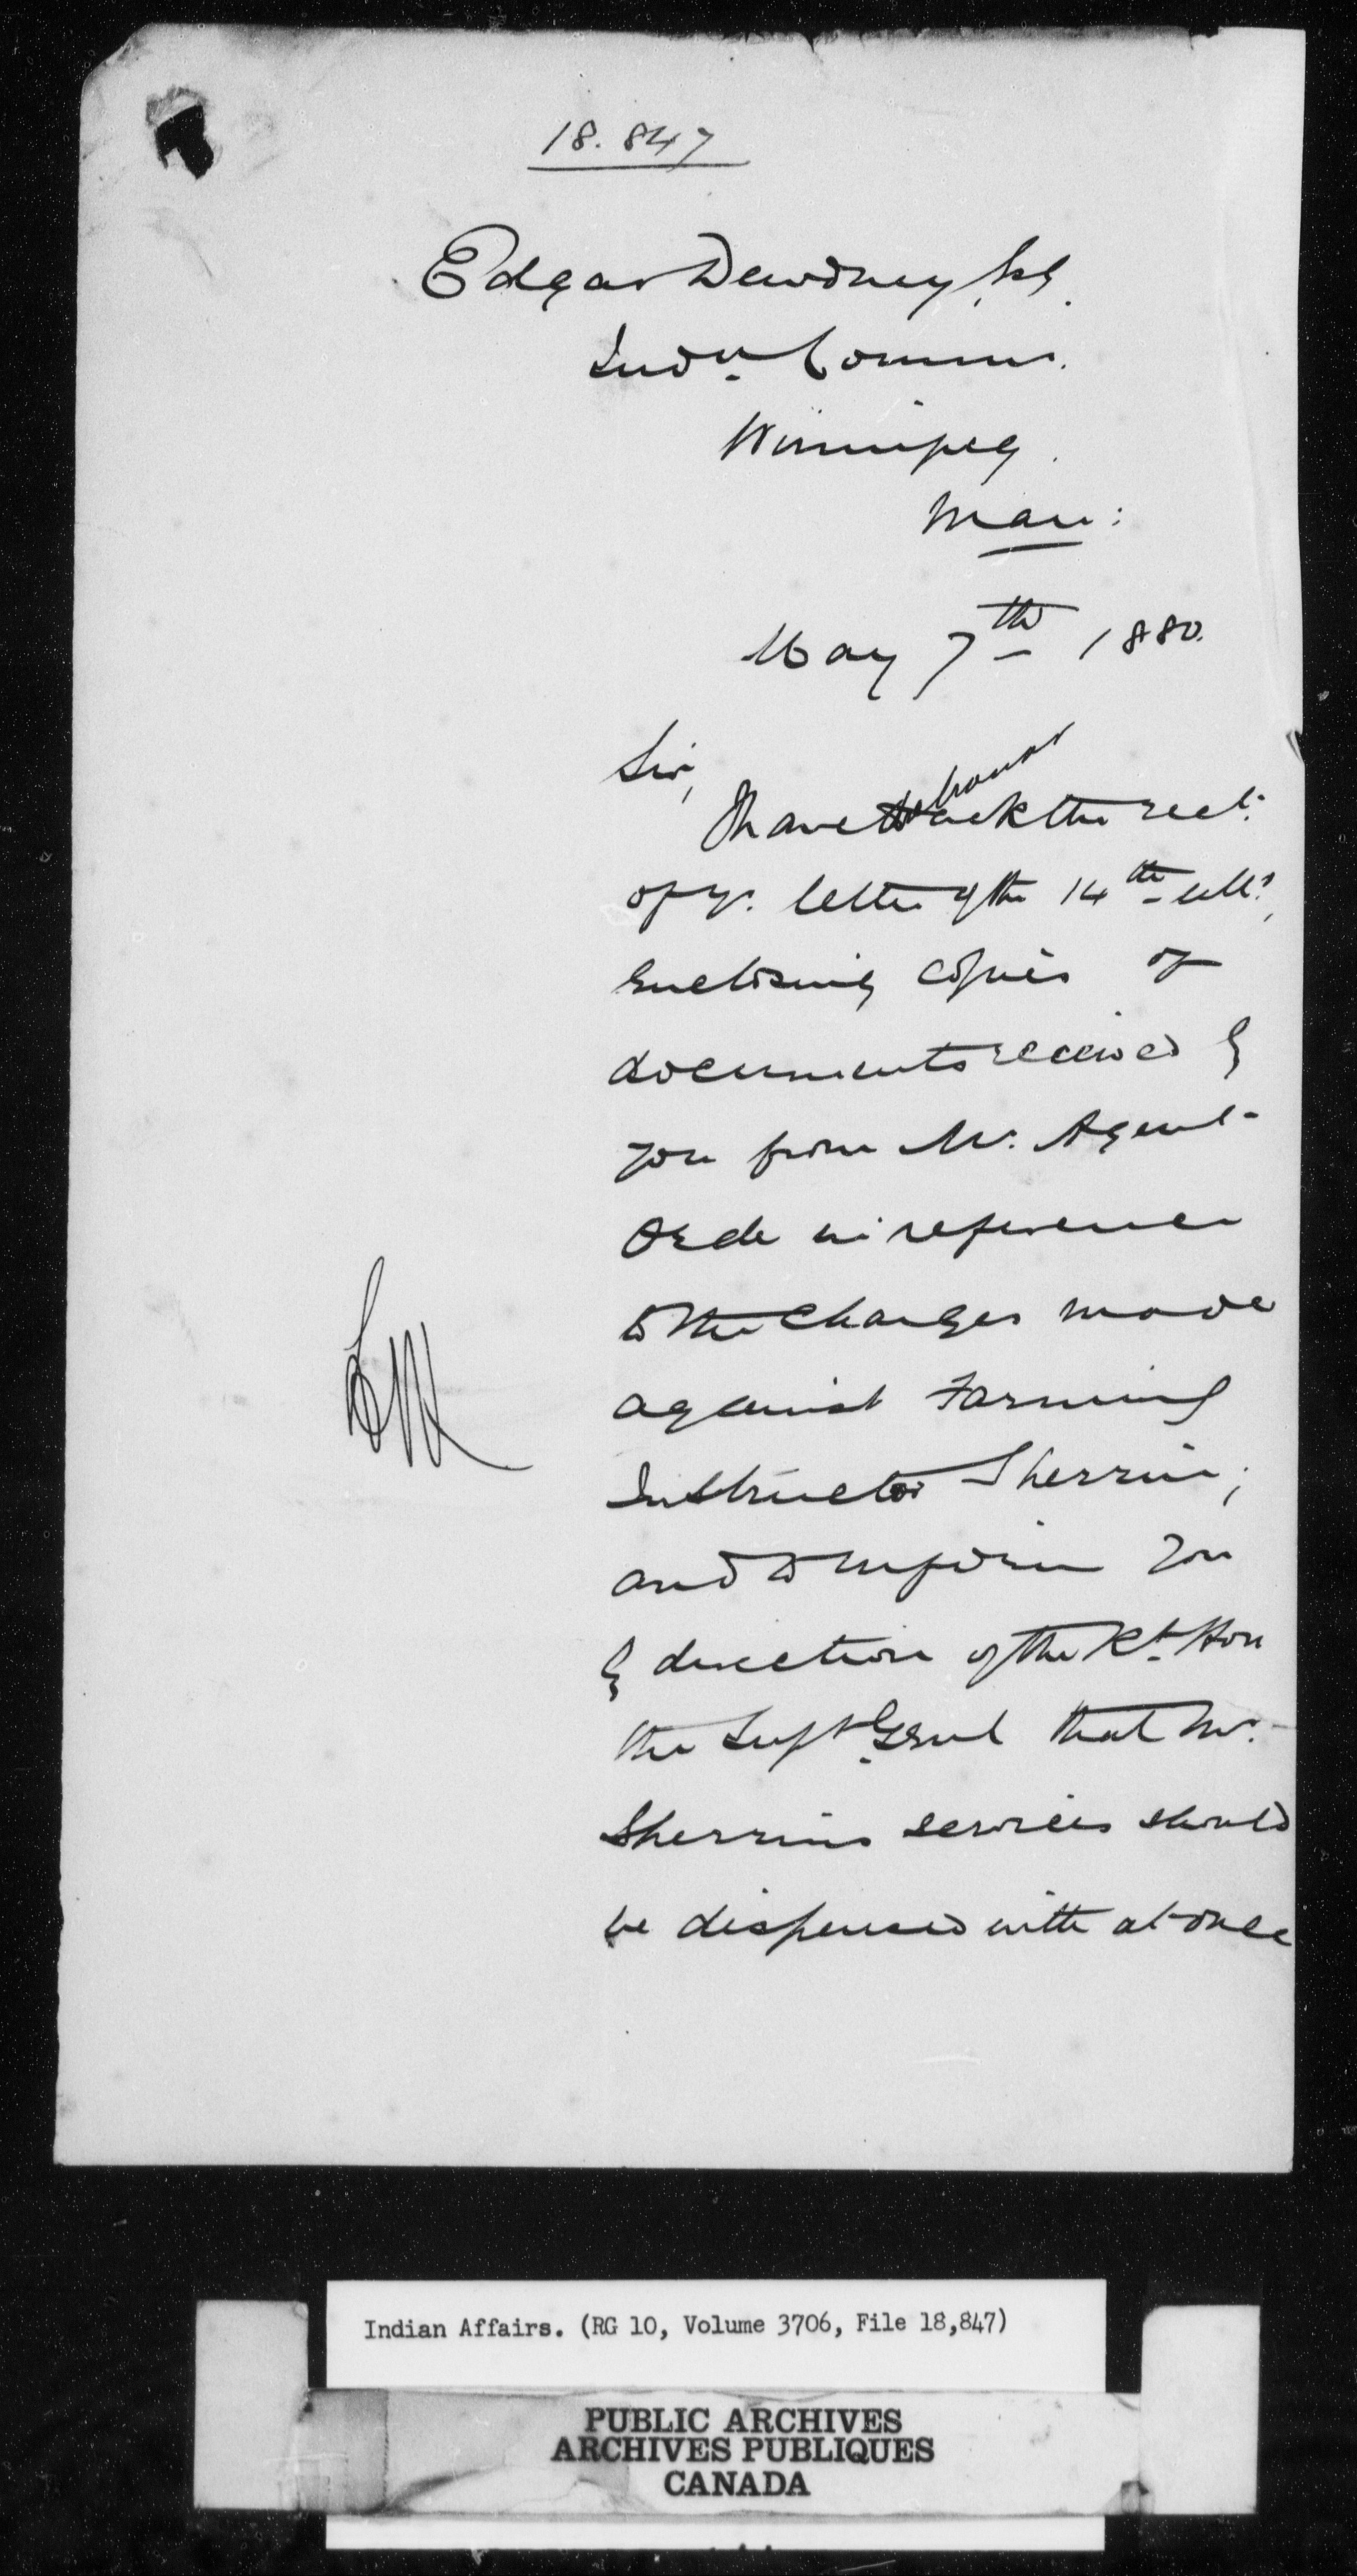 18.847
Edgar Dewdney Esq.
Indn. Commr.
Winnipeg.
Man:
May 7th 1880.
Sir,
I have the honor
to ack the rect.
of yr. letter of the 14th ult.,
enclosing copies of
documents received by
you from Mr. Agent
Orde in reference
to the charges made
against Farming
Instructor Sherrin;
and to inform you
by direction of the Rt. Hon
the Supt. Genl that Mr.
Sherrins services should
be dispensed with at once
Indian Affairs. (RG 10, Volume 3706, File 18,847)
PUBLIC ARCHIVES
ARCHIVES PUBLIQUES
CANADA